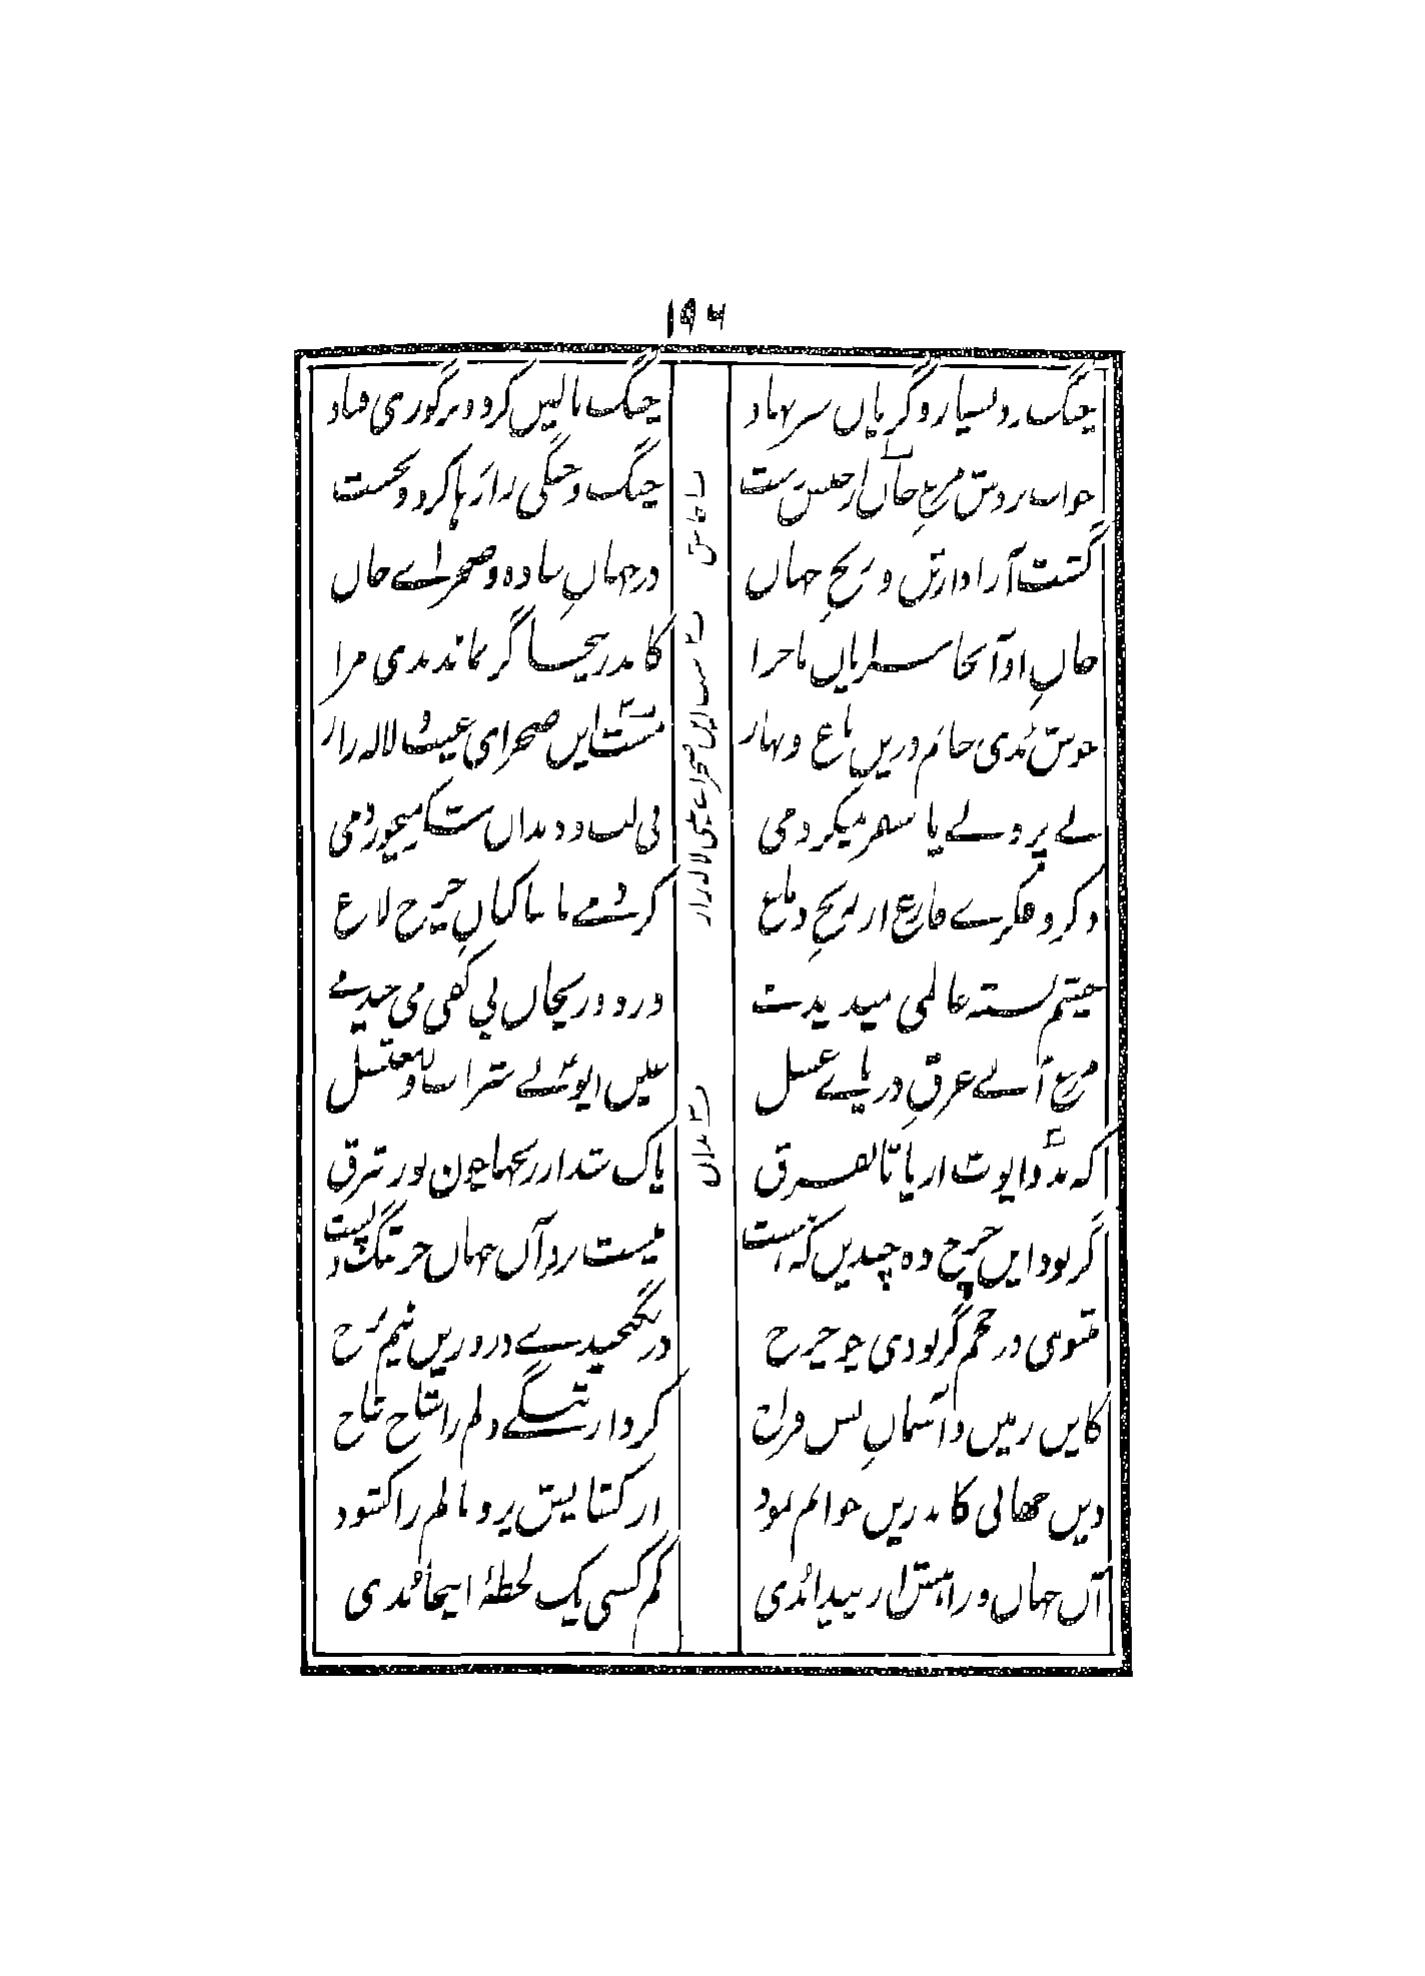 ۱۹۶
چنگ زد بسیار و گریاں سر نہاد
چنگ بالیں کرد و بر گوری فتاد
خواب بردش مرغ جاں از حبس رست
چنگ و چنگی را رہا کرد و بجست
گشت آزاد از تن و رنج جہاں
در جہانِ سادہ و صحرائے جاں
جانِ او آنجا سرایاں ماجرا
کاندریں جا گر بماندندی مرا
خوش بُدی جانم دریں باغ و بہار
مست ایں صحرای غیب و لالہ زار
بے پر و بے پا سفر میکردمی
بی لب و دنداں شکر میخوردمی
ذکر و فکرے فارغ از رنج دماغ
کردمے با ساکنانِ چرخ لاغ
چشم بستہ عالمی میدیدمے
ورد و ریحاں بی کفی می چیدمے
مرغ آبے غرقِ دریائے عسل
عین ایوبے شراب و مغتسل
کہ بدو ایوب از پا تا بفرق
پاک شد از رنجہا چون نور شرق
گر بود ایں چرخ دہ چندیں کہ ہست
نیست نزد آں جہاں جز تنگ و پست
مثنوی در حجم گر بودی چو چرخ
در نگنجیدے درو زیں نیم برخ
کایں زمین و آسمانِ بس فراخ
کرد از تنگے دلم را شاخ شاخ
ویں جہانی کاندریں خوابم نمود
از گشایش پر و بالم را کشود
آں جہاں و راہش ار پیدا بُدی
کم کسی یک لحظۂ اینجا بُدی